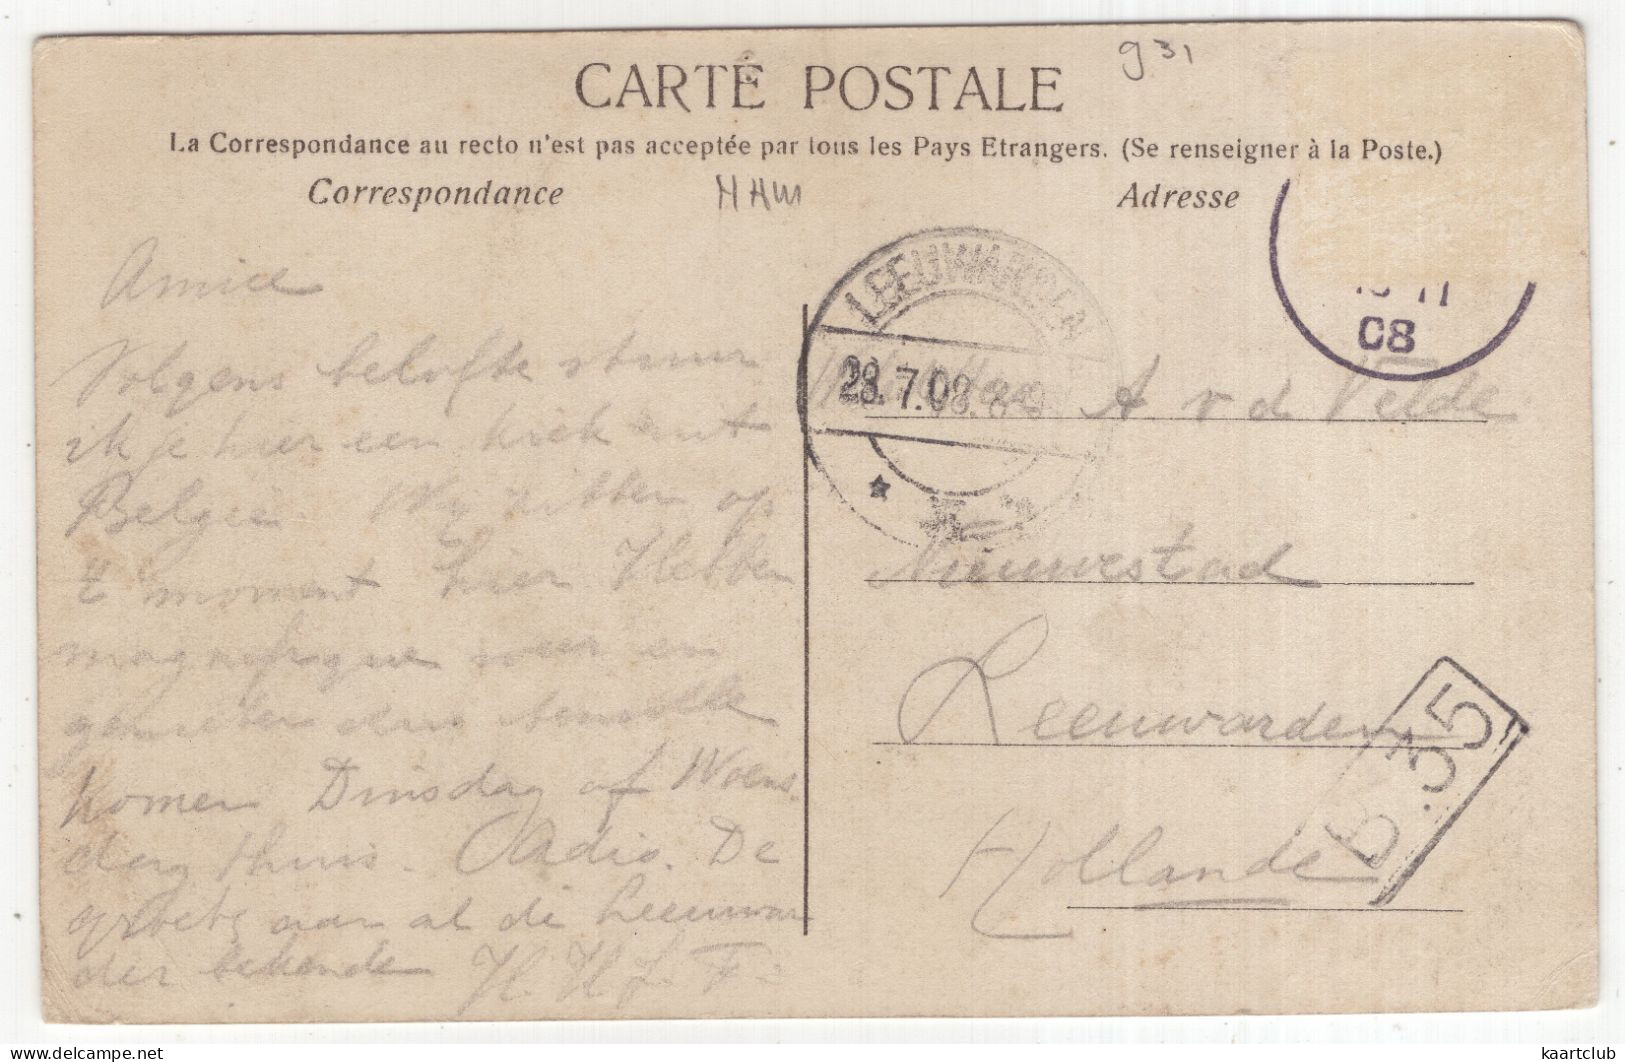 931
CARTE POSTALE
La Correspondance au recto n'est pas acceptée par tous les Pays Etrangers. (Se renseigner à la Poste.)
Correspondance
Adresse
Amice
Volgens belofte stuur
ik je hier een kiek uit
België. Wij zitten op
't moment hier Hebben
magnifique weer en
genieten dus
komen Dinsdag of Woens
dag thuis. Adio. De
groete aan al de Leeuwar
der bekende H. H. F.
LEEUWARDEN
28.7.08.
08
A v d Velde
Nieuwestad
Leeuwarden
Hollande
B.35
kaartclub